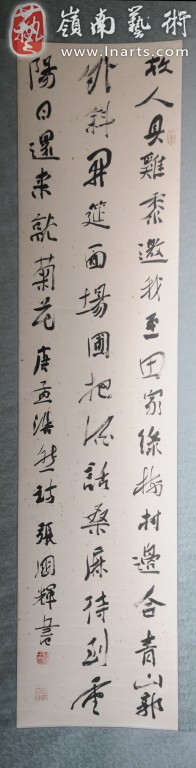 嶺南藝術
www.lnarts.com
故人具雞黍邀我至田家綠樹村邊合青山郭
外斜開筵面場圃把酒話桑麻待到重
陽日還來就菊花唐孟浩然詩張國輝書